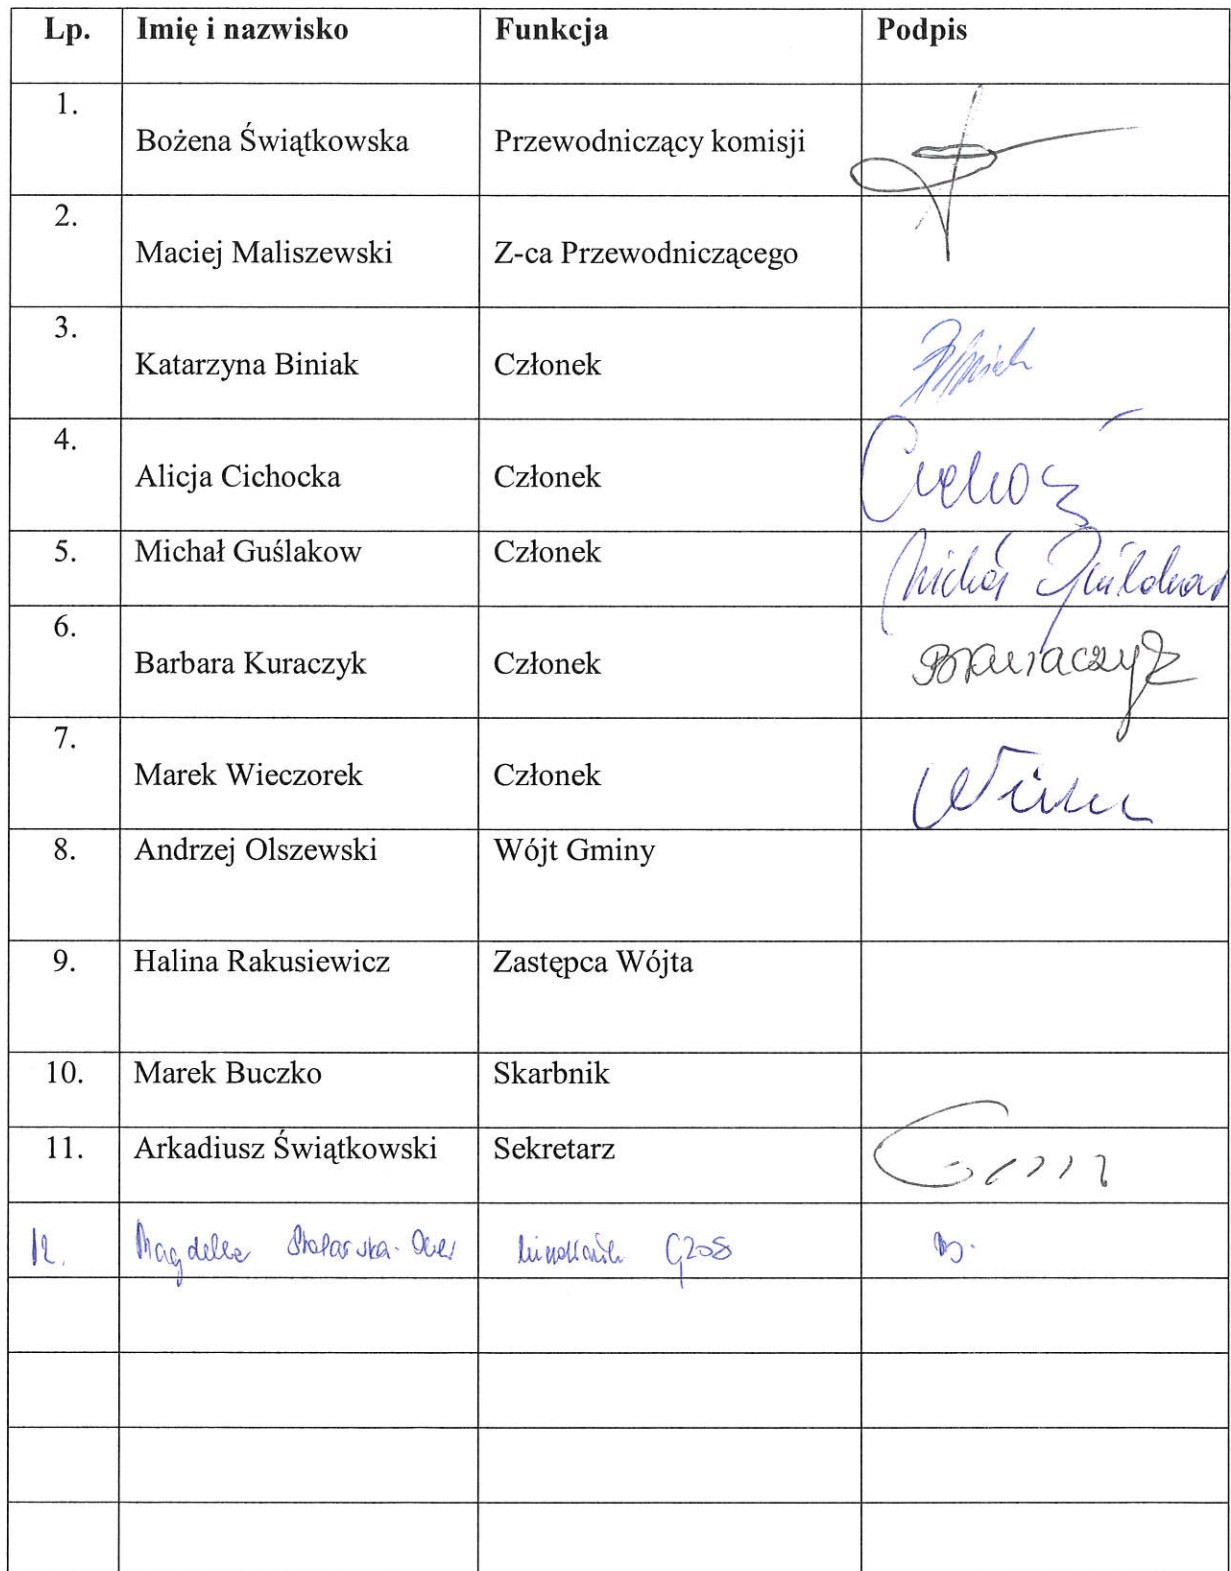 Lp. Imię i nazwisko Funkcja Podpis
1. Bożena Świątkowska Przewodniczący komisji
2. Maciej Maliszewski Z-ca Przewodniczącego
3. Katarzyna Biniak Członek
4. Alicja Cichocka Członek
5. Michał Guślakow Członek
6. Barbara Kuraczyk Członek
7. Marek Wieczorek Członek
8. Andrzej Olszewski Wójt Gminy
9. Halina Rakusiewicz Zastępca Wójta
10. Marek Buczko Skarbnik
11. Arkadiusz Świątkowski Sekretarz
12. Magdalena